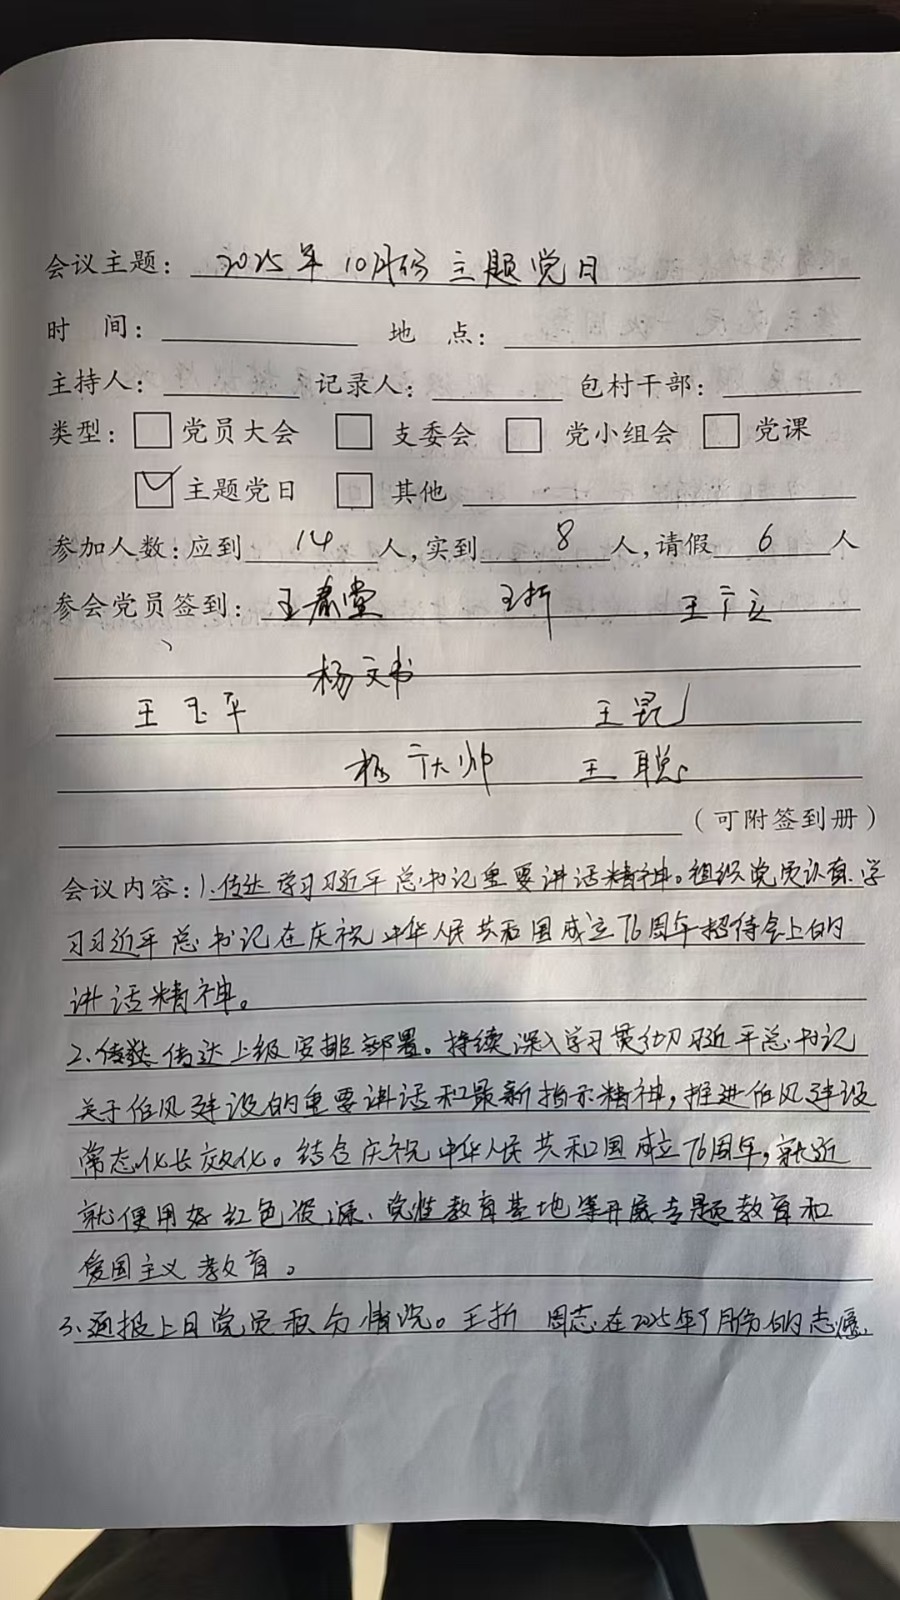 会议主题: 2025年10月份主题党日
时 间: 地 点:
主持人: 记录人: 包村干部:
类型: 党员大会 支委会 党小组会 党课
主题党日 其他
参加人数:应到 14 人,实到 8 人,请假 6 人
参会党员签到: 王春堂 王折 王宁立
杨文书
王玉平 王昆
杨 帅 王聪
(可附签到册)
会议内容: 1.传达学习习近平总书记重要讲话精神。组织党员认真学
习习近平总书记在庆祝中华人民共和国成立76周年招待会上的
讲话精神。
2.传达上级安排部署。持续深入学习贯彻习近平总书记
关于作风建设的重要讲话和最新指示精神,推进作风建设
常态化长效化。结合庆祝中华人民共和国成立76周年,就近
就便用好红色资源、党性教育基地等开展专题教育和
爱国主义教育。
3.通报上月党员积分情况。王折 同志在2025年9月份的志愿